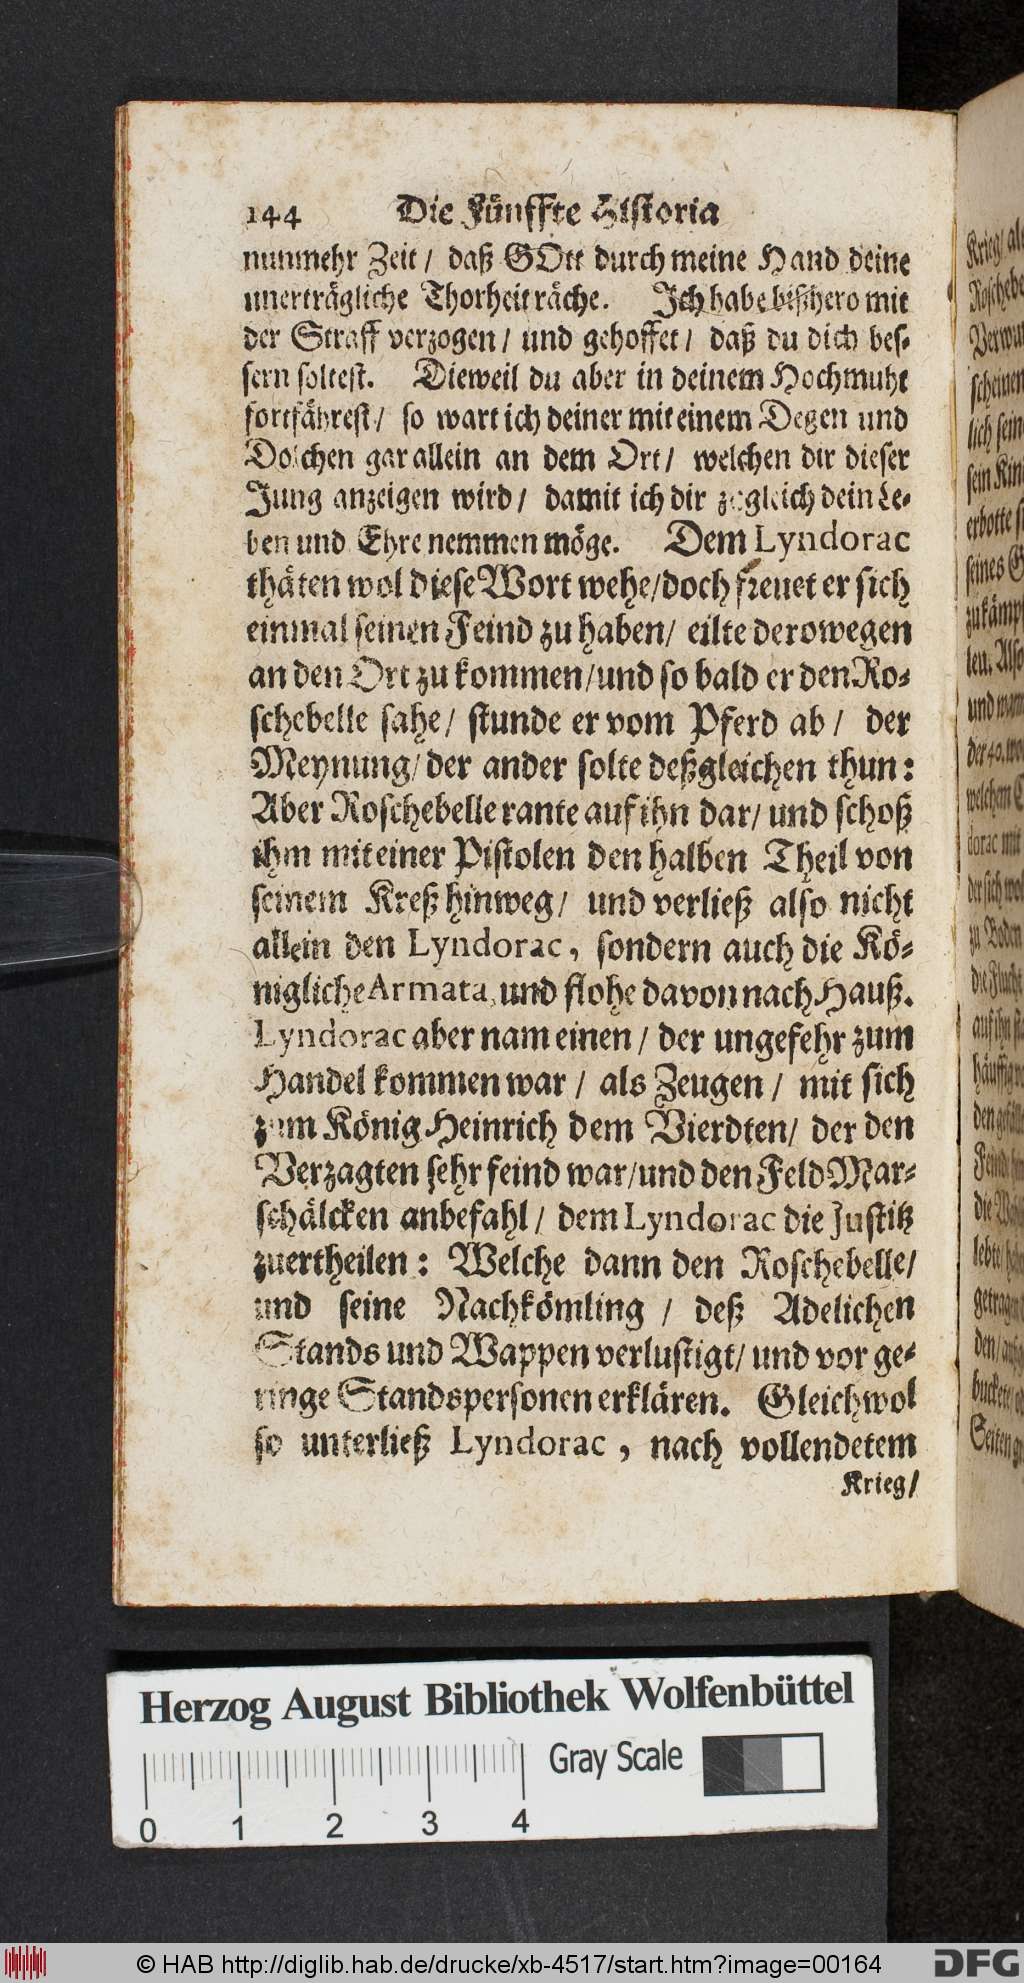 144 Die Fünffte Historia
nunmehr Zeit / daß GOtt durch meine Hand deine
unerträgliche Thorheit räche. Ich habe bißhero mit
der Straff verzogen / und gehoffet / daß du dich bes-
sern soltest. Dieweil du aber in deinem Hochmuht
fortfährest / so wart ich deiner mit einem Degen und
Dolchen gar allein an dem Ort / welchen dir dieser
Jung anzeigen wird / damit ich dir zugleich dein Le-
ben und Ehre nemmen möge. Dem Lyndorac
thäten wol diese Wort wehe / doch freuet er sich
einmal seinen Feind zu haben / eilte derowegen
an den Ort zu kommen / und so bald er den Ro-
schebelle sahe / stunde er vom Pferd ab / der
Meynung / der ander solte deßgleichen thun:
Aber Roschebelle rante auf ihn dar / und schoß
ihm mit einer Pistolen den halben Theil von
seinem Kreß hinweg / und verließ also nicht
allein den Lyndorac, sondern auch die Kö-
nigliche Armata, und flohe davon nach Hauß.
Lyndorac aber nam einen / der ungefehr zum
Handel kommen war / als Zeugen / mit sich
zum König Heinrich dem Vierdten / der den
Verzagten sehr feind war / und den Feld Mar-
schälcken anbefahl / dem Lyndorac die Justitz
zuertheilen: Welche dann den Roschebelle /
und seine Nachkömling / deß Adelichen
Stands und Wappen verlustigt / und vor ge-
ringe Standspersonen erklären. Gleichwol
so unterließ Lyndorac, nach vollendetem
Krieg /
Herzog August Bibliothek Wolfenbüttel
Gray Scale
0 1 2 3 4
© HAB http://diglib.hab.de/drucke/xb-4517/start.htm?image=00164
DFG